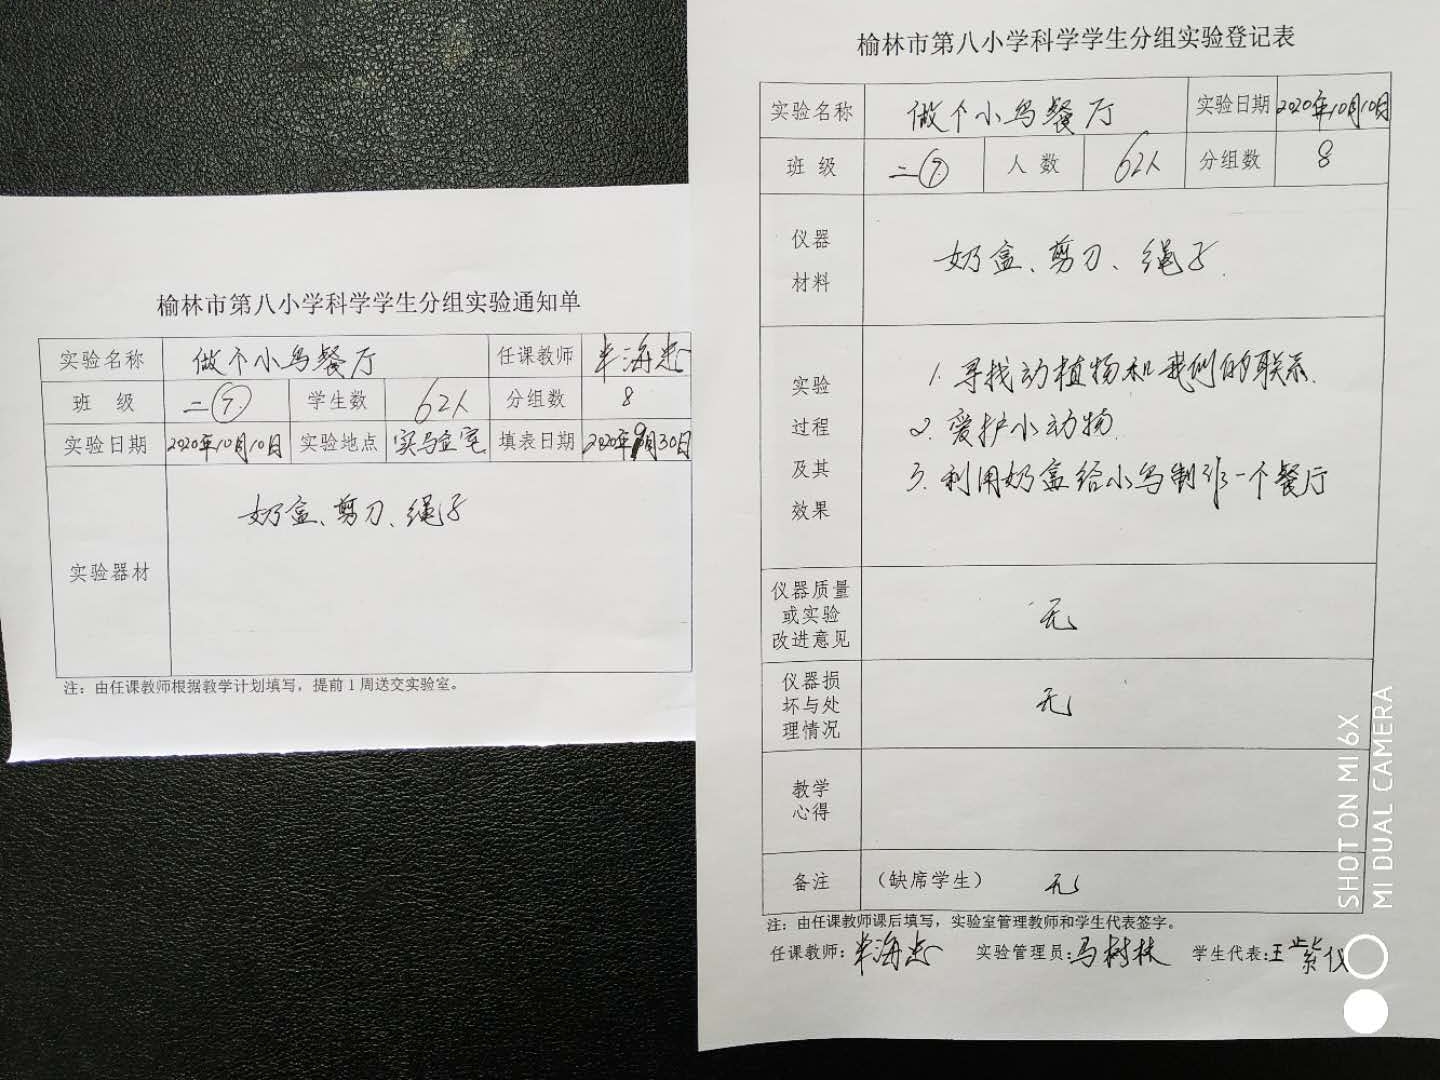 榆林市第八小学科学学生分组实验通知单
实验名称 做个小鸟餐厅 任课教师 海忠
班 级 二⑦ 学生数 62人 分组数 8
实验日期 2020年10月10日 实验地点 实验室 填表日期 2020年9月30日
实验器材 奶盒、剪刀、绳子
注：由任课教师根据教学计划填写，提前1周送交实验室。
榆林市第八小学科学学生分组实验登记表
实验名称 做个小鸟餐厅 实验日期 2020年10月10日
班 级 二⑦ 人 数 62人 分组数 8
仪器
材料
奶盒、剪刀、绳子.
实验
过程
及其
效果
1. 寻找动植物和我们的联系.
2. 爱护小动物.
3. 利用奶盒给小鸟制作一个餐厅
仪器质量
或实验
改进意见
无
仪器损
坏与处
理情况
无
教学
心得
备注 （缺席学生） 无
注：由任课教师课后填写，实验室管理教师和学生代表签字。
任课教师： 海忠 实验管理员：马树林 学生代表：王紫仪
SHOT ON MI 6X
MI DUAL CAMERA